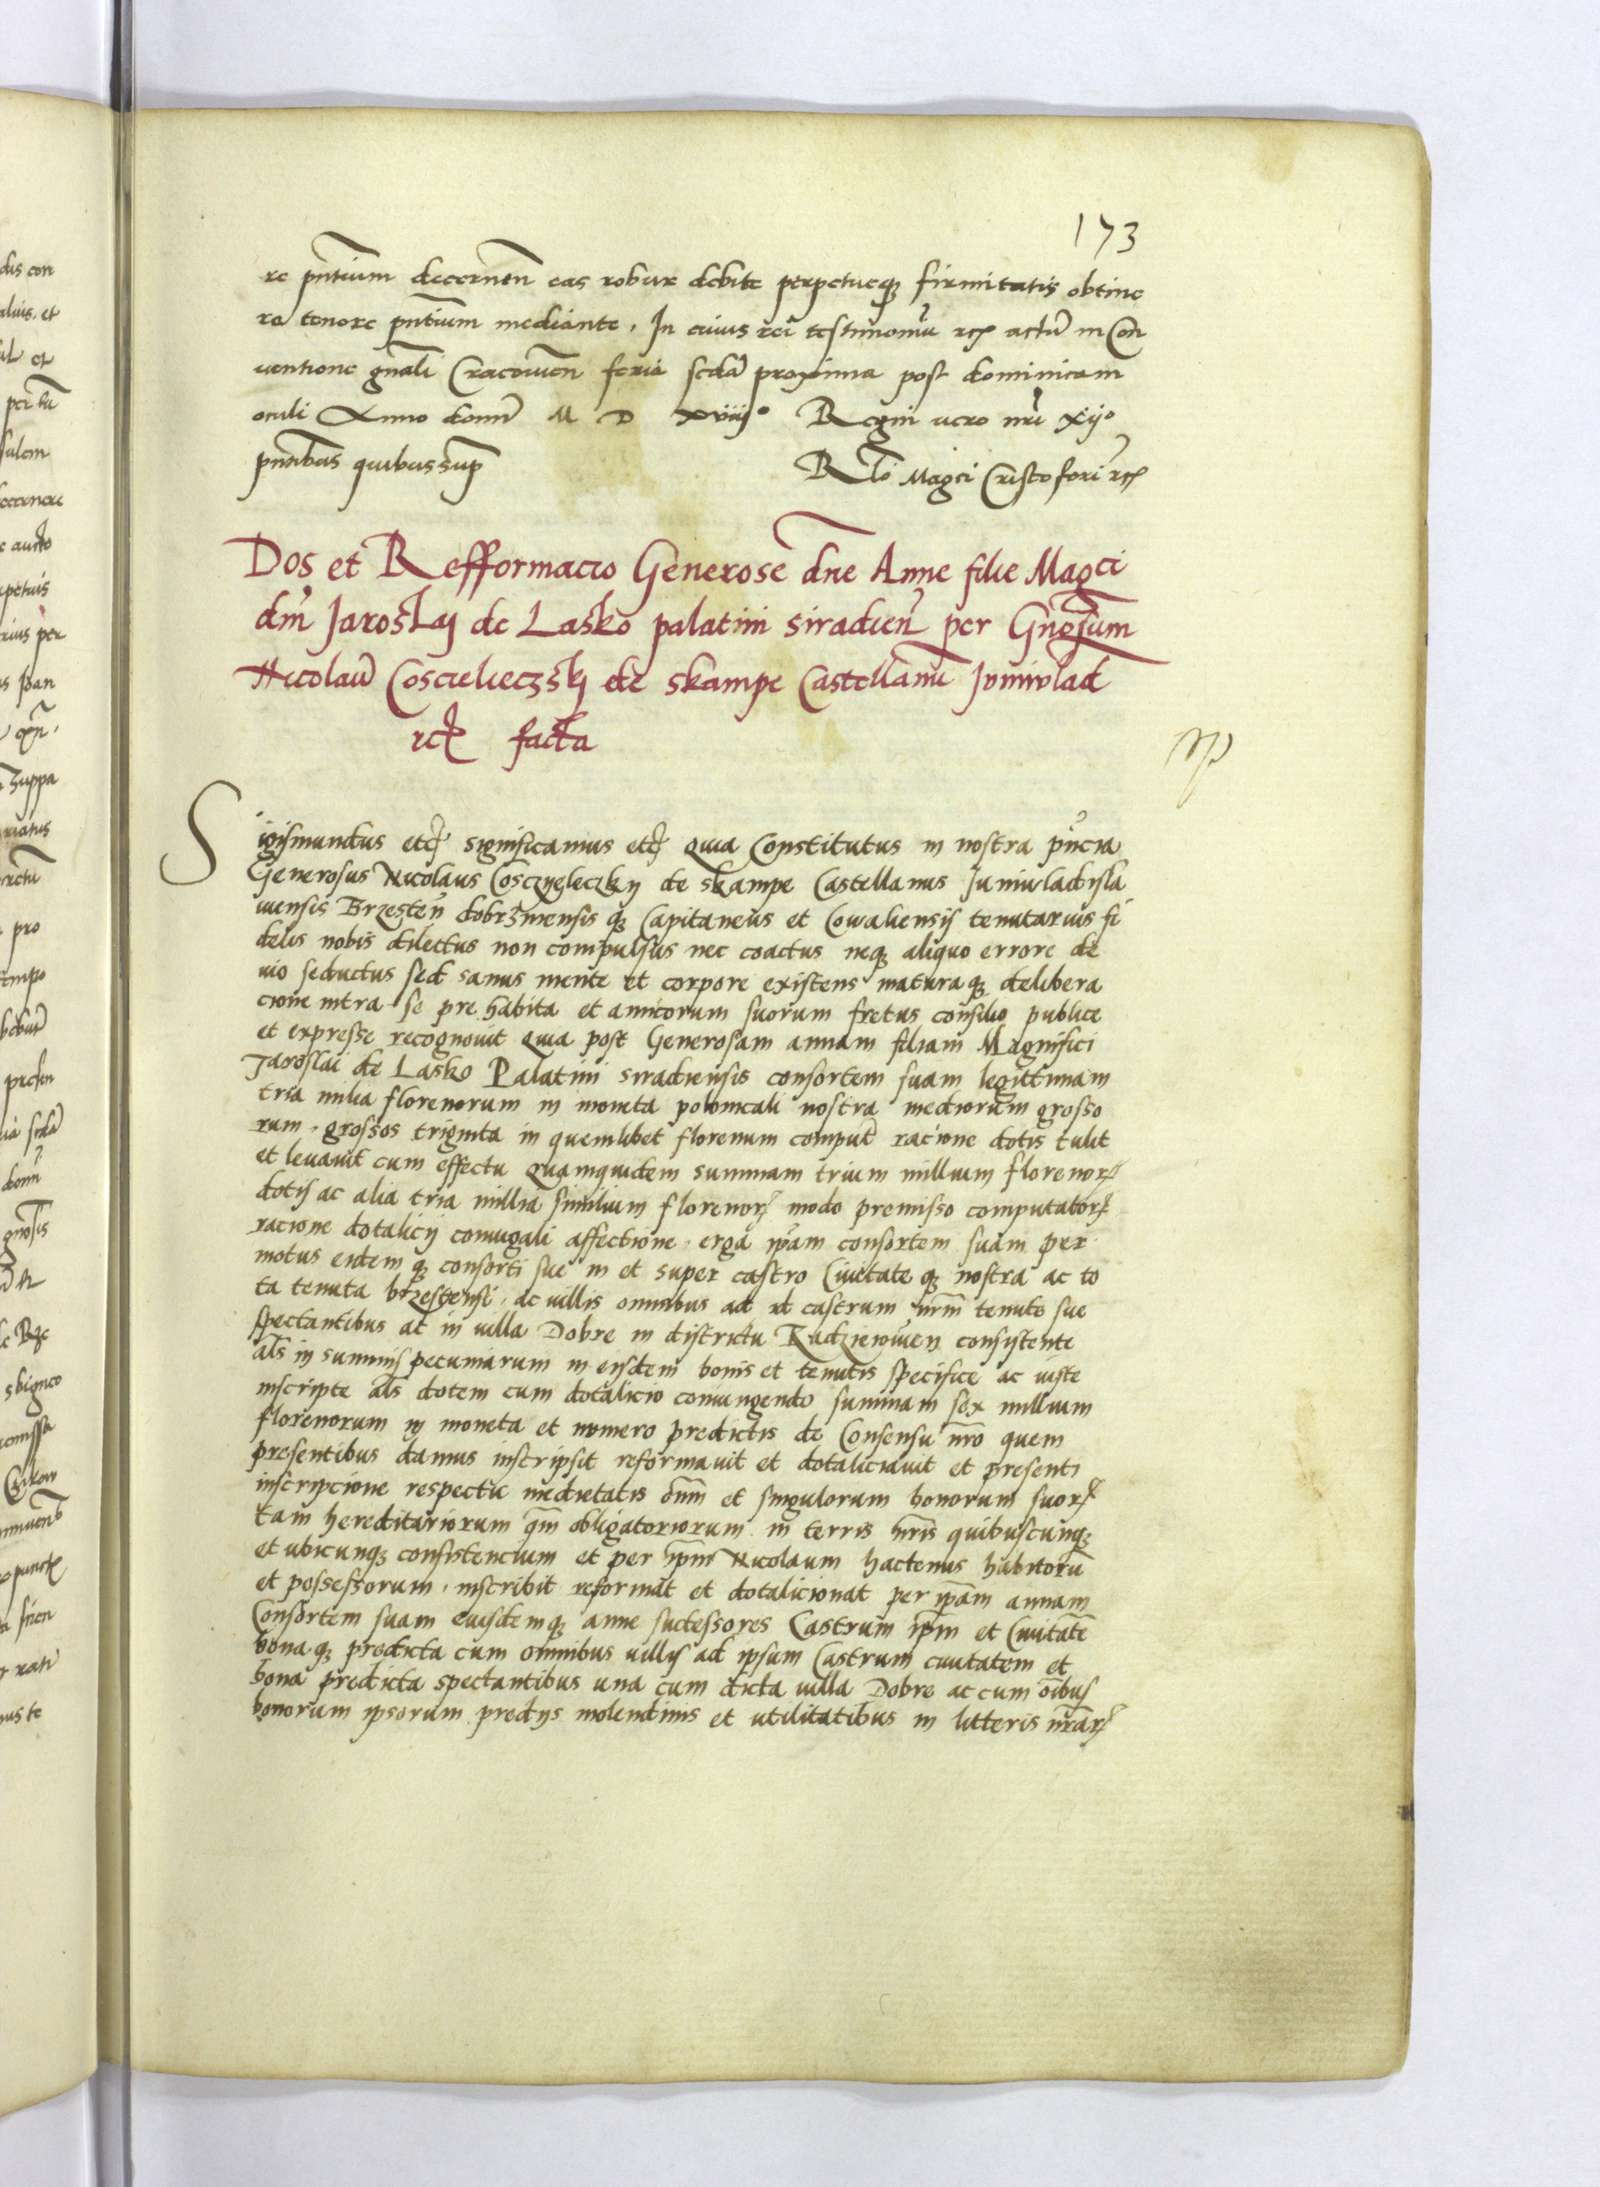 173
re pntium decernen eas robur debite perpetueq firmitatis obtine
re tenore pntium mediante. In cuius rei testimoniu rcz actu in Con
uentione gnali Cracouien feria scda proxima post dominicam
oculi Anno domi M D xviij° Regni uero nri xij°
pntibus quibus sup Rlo Magci Cristoferi rcz
Dos et Refformacio Generose dne Anne filie Magci
dni Jaroslaj de Lasko palatini siradien per Gnosum
Nicolau Coscieleczskj de skampe Castellanu Juniulad
rcz facta
Sigismundus etcz significamus etcz quia Constitutus in nostra pncia
Generosus Nicolaus Cosczyeleczkij de skampe Castellanus Juniuladisla
uiensis Brzesten dobrzinensis q Capitaneus et Cowaliensis tenutarius fi
delis nobis dilectus non compulsus nec coactus neq aliquo errore de
uio seductus sed sanus mente et corpore existens matura q delibera
cione intra se pre habita et amicorum suorum fretus consilio publice
et expresse recognouit quia post Generosam annam filiam Magnifici
Jaroslai de Lasko Palatini siradiensis consortem suam legittimam
tria milia florenorum in moneta polonicali nostra mediorum grosso
rum. grossos triginta in quemlibet florenum comput racione dotis tulit
et leuauit cum effectu quamquidem summam trium millium florenor
dotis ac alia tria millia similium florenor modo premisso computator
racione dotalicij coniugali affectione. erga ipam consortem suam per
motus eidem q consorti sue in et super castro Ciuitate q nostra ac to
ta tenuta brzestensi. ac villis omnibus ad id castrum nrm tenute sue
spectantibus ac in villa Dobre in districtu Radzieiowien consistente
als in summis pecuniarum in eisdem bonis et tenutis specifice ac iuste
inscripte als dotem cum dotalicio coniungendo summam sex millium
florenorum in moneta et numero predictis de Consensu nro quem
presentibus damus inscripsit reformauit et dotaliciauit et presenti
inscripcione respectu medietatis onm et singulorum bonorum suor
tam hereditariorum qm obligatoriorum in terris nris quibuscunq
et ubicunq consistencium et per ipm Nicolaum hactenus habitoru
et possessorum. inscribit reformat et dotalicionat per ipam annam
Consortem suam eiusdemq anne successores Castrum ipm et Ciuitate
bona q predicta cum omnibus villis ad ipsum Castrum ciuitatem et
bona predicta spectantibus una cum dicta villa Dobre ac cum oibus
bonorum ipsorum predijs molendinis et utilitatibus in litteris nrar